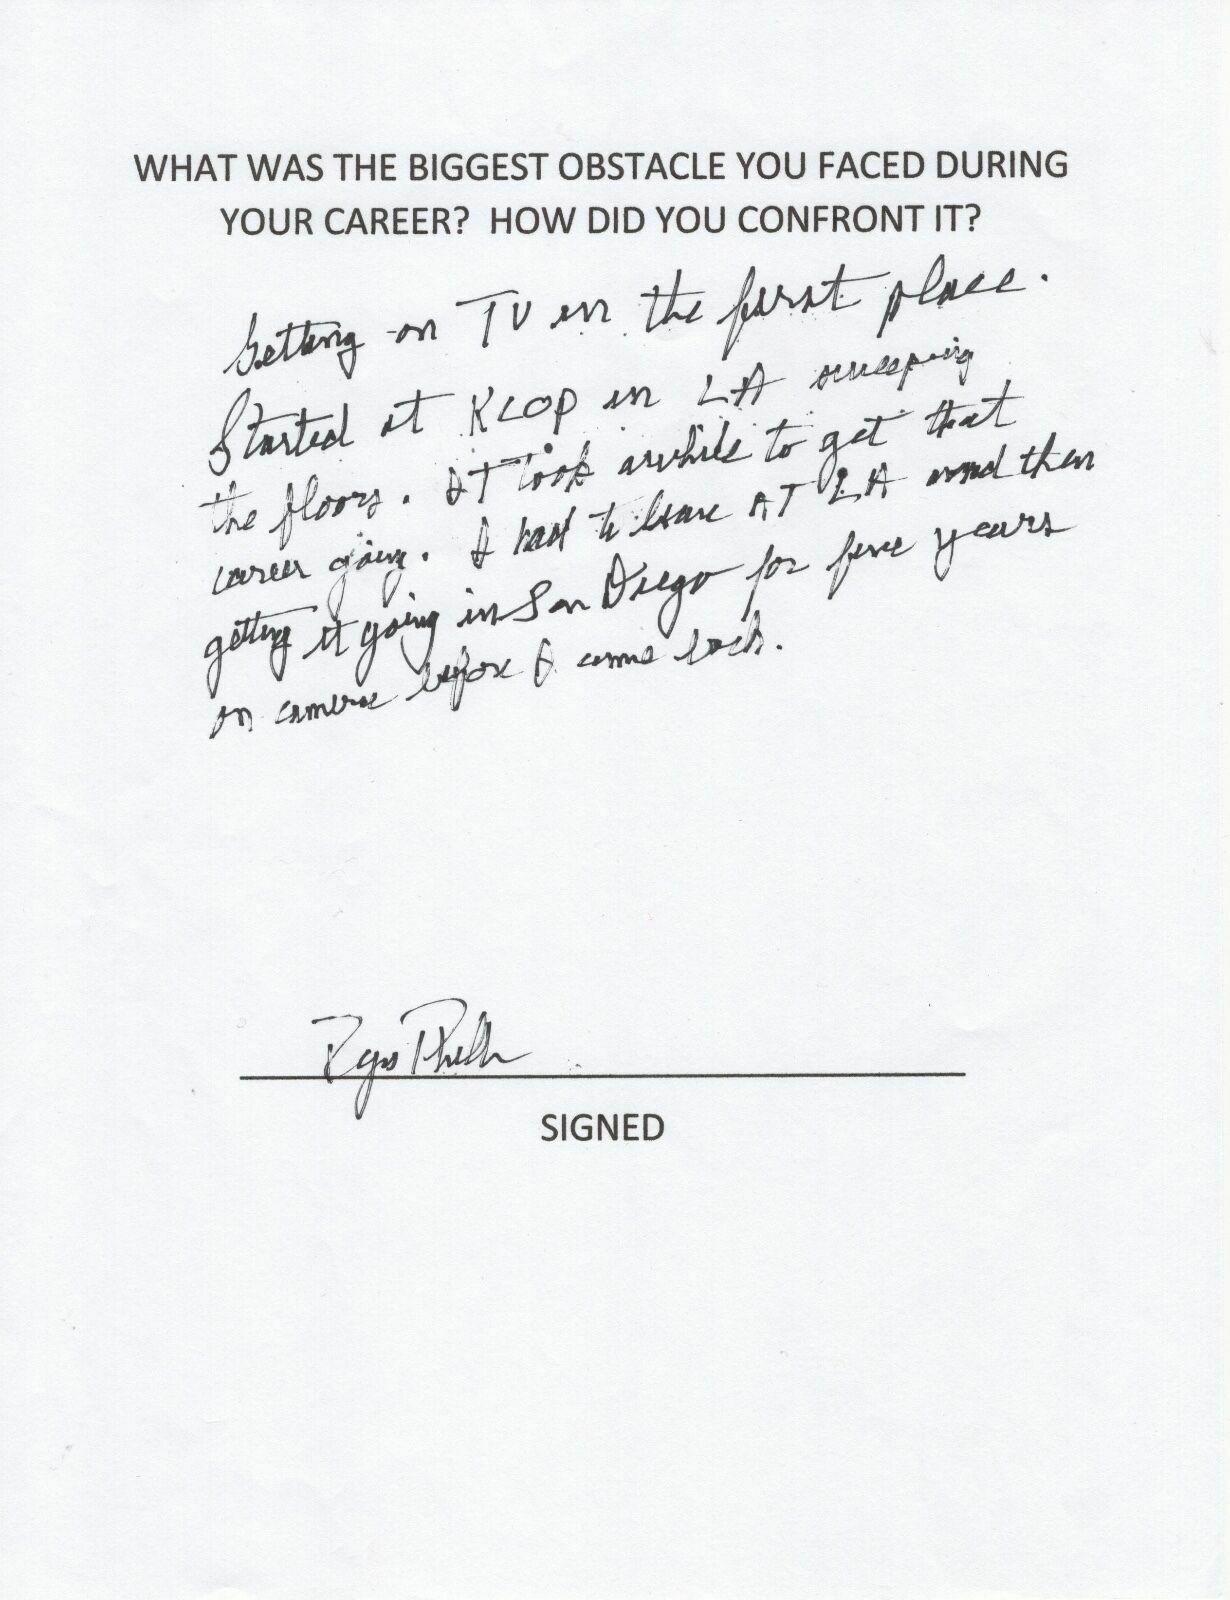 WHAT WAS THE BIGGEST OBSTACLE YOU FACED DURING
YOUR CAREER? HOW DID YOU CONFRONT IT?
Getting on TV in the first place.
Started at KCOP in LA sweeping
the floors. It took awhile to get that
career going. I had to leave AT LA and then
getting it going in San Diego for five years
on camera before I came back.
Regis Philbin
SIGNED